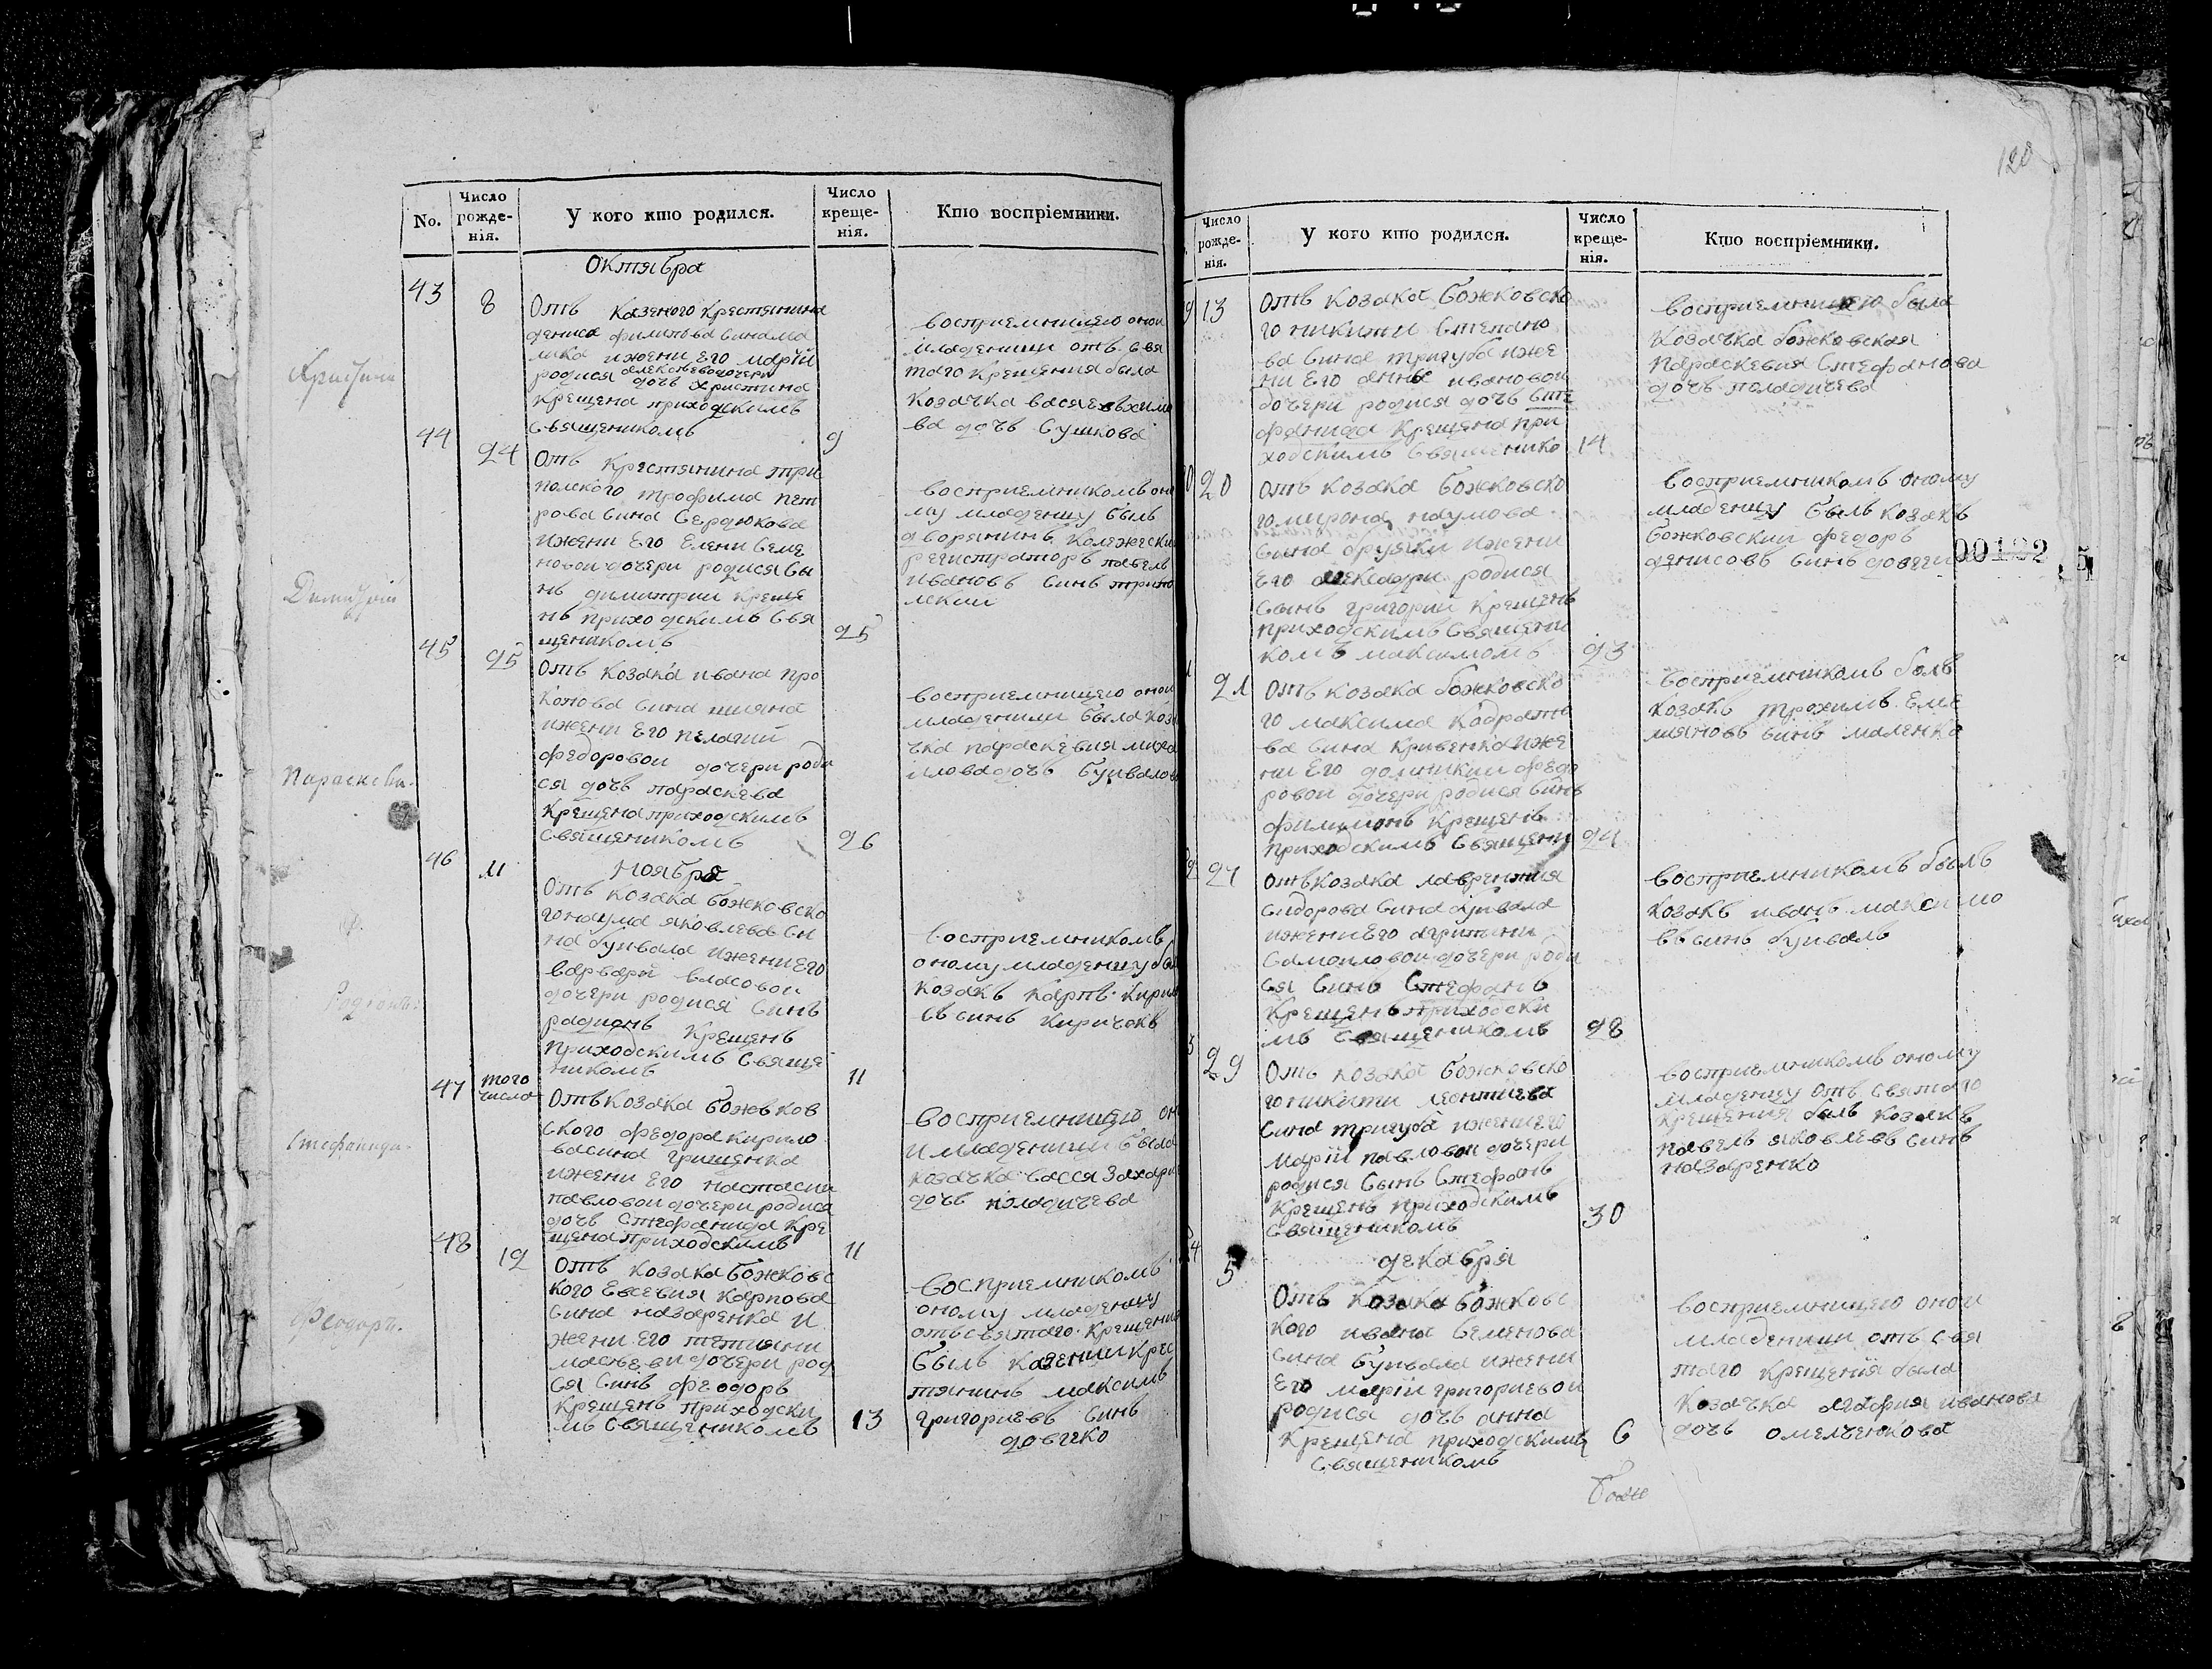 No.
Число рожде-нія.
У кого кто родился.
Число креще-нія.
Кто воспріемники.
Октября
43
8
Отъ казеного крестянина
дениса филипова сина ма
лика ижени Его марїи
алексѣевой дочери
родися дочъ христина
крещена приходскимъ
священикомъ
9
восприемницею оной
младеници отъ свя
таго крещения была
козачка васса
ва дочъ Сушкова
44
24
Отъ крестянина три
полского трофима пет
рова сина Сердюкова
ижени Его Елени Семе
новой дочери родися Сы
нъ димитрий креще
нъ приходскимъ Свя
щеникомъ
25
восприемникомъ оно
му младенцу былъ
дворянинъ колежески
регистраторъ павелъ
ивановъ синъ трипо
лский
Димитрій
45
25
Отъ козака ивана про
копова сина
ижени Его пелагии
федоровой дочери роди
ся дочъ параскева
крещена приходскимъ
священикомъ
26
восприемницею оной
младеници была коза
чка параскевия миха
илова дочъ бунвалова
Параскева.
46
11
Ноября
Отъ козака божковско
го наума яковлева си
на бунвала ижени Его
варвари власовой
дочери родися Синъ
радионъ крещенъ
приходскимъ Свяще
никомъ
11
восприемникомъ
оному младенцу был
козакъ карпъ кирил
въ синъ киричокъ
Родіонъ.
47
того числа
Отъ козака божьков
ского федора кирило
ва сина грищенка
ижени Его настасии
павловой дочери родися
дочъ Стефанида кре
щена приходскимъ
11
восприемницею он
и младеници была
козачка васся захари
дочъ поладичева
Стефанида.
48
12
Отъ козака божковс
кого Евсевия карпова
Сина назаренка и
жени Его тетяни
дочери род
ся Синъ феодоръ
крещенъ приходски
мъ Священикомъ
13
восприемникомъ
оному младенцу
отъ святаго крещения
былъ казений крес
тянинъ максимъ
григориевъ Синъ
довгеко
Феодоръ.
120
Число рожде-нія.
У кого кто родился.
Число креще-нія.
Кто воспріемники.
9
13
Отъ козака божковско
го никити Степано
ва Сина тригуба иже
ни Его анны ивановой
дочери родися дочъ Сте
фанида крещена при
ходскимъ Священико
14
восприемницею была
козачка божковская
параскевия Стефанова
дочъ поладичева
0
20
Отъ козака божковско
го мирона наумова
Сина друяки ижени
Его родися
Сынъ григорий крещенъ
приходскимъ Священи
комъ максимомъ
23
восприемникомъ оному
младенцу былъ козакъ
божковский федоръ
денисовъ синъ
00192
1
21
Отъ козака божковско
го максима кодрать
ва Сина кривенка иже
ни Его домникии федо
ровой дочери родися Синъ
филимонъ крещенъ
приходскимъ Священи
24
восприемникомъ билъ
козакъ трохимъ Еме
ляновъ синъ маленко
2
27
Отъ козака лаврентия
Сидорова Сина бунвала
ижени Его агрипини
Самоиловой дочери роди
ся Синъ Стефанъ
крещенъ приходски
мъ Священикомъ
28
восприемникомъ былъ
козакъ иванъ максимо
въ синъ бунвалъ
3
29
Отъ козака божковско
го никити леонтиева
Сина тригуба ижени Его
марїи павловой дочери
родися Сынъ Стефанъ
крещенъ приходскимъ
Священикомъ
30
восприемникомъ оному
младенцу отъ святаго
крещения билъ козакъ
павелъ яковлевъ Синъ
назаренко
4
5
декабря
Отъ козака божковс
кого ивана Семенова
Сина бунвала ижени
Его марїи григориевой
родися дочъ анна
крещена приходскимъ
Священикомъ
6
восприемницею оной
младеници отъ свя
таго крещенїя была
козачка агафия иванова
дочъ омелченкова